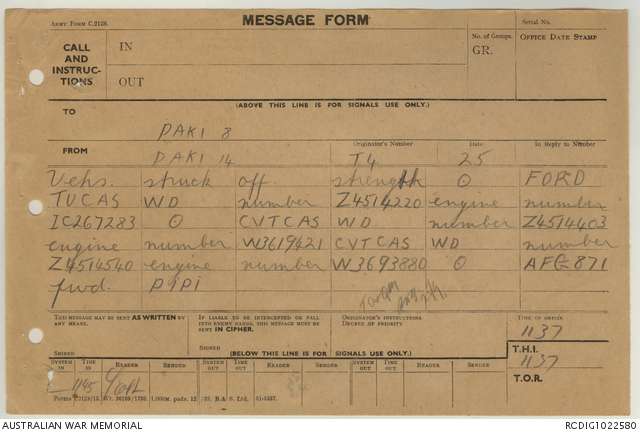 ARMY FORM C.2128.
MESSAGE FORM
Serial No.
CALL AND INSTRUC-TIONS
IN
OUT
No. of Groups.
GR.
OFFICE DATE STAMP
(ABOVE THIS LINE IS FOR SIGNALS USE ONLY.)
TO
PAKI 8
FROM
PAKI 14
Originator's Number
T4
Date
25
In Reply to Number
Vehs. struck off strength O FORD
TUCAS WD number Z4514220 engine number
IC267283 O CVTCAS WD number Z4514403
engine number W3619421 CVTCAS WD
Z4514540 engine number W3693880 O AFG 871
fwd. PIPI
THIS MESSAGE MAY BE SENT AS WRITTEN BY ANY MEANS.
IF LIABLE TO BE INTERCEPTED OR FALL INTO ENEMY HANDS, THIS MESSAGE MUST BE SENT IN CIPHER.
ORIGINATOR'S INSTRUCTIONS
DEGREE OF PRIORITY
TIME OF ORIGIN
1137
SIGNED
SIGNED
(BELOW THIS LINE IS FOR SIGNALS USE ONLY.)
T.H.I.
1137
T.O.R.
SYSTEM IN
TIME IN
READER
SENDER
SYSTEM OUT
TIME OUT
READER
SENDER
SYSTEM OUT
TIME OUT
READER
SENDER
1145
AUSTRALIAN WAR MEMORIAL
RCDIG1022580